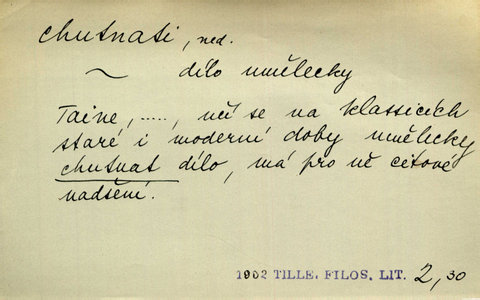 chutnati, ned.
~ dílo umělecky
Taine, ....., učí se na klassicích
staré i moderní doby umělecky
chutnat dílo, má pro ně citové
nadšení.
1902 TILLE. FILOS. LIT. 2,30